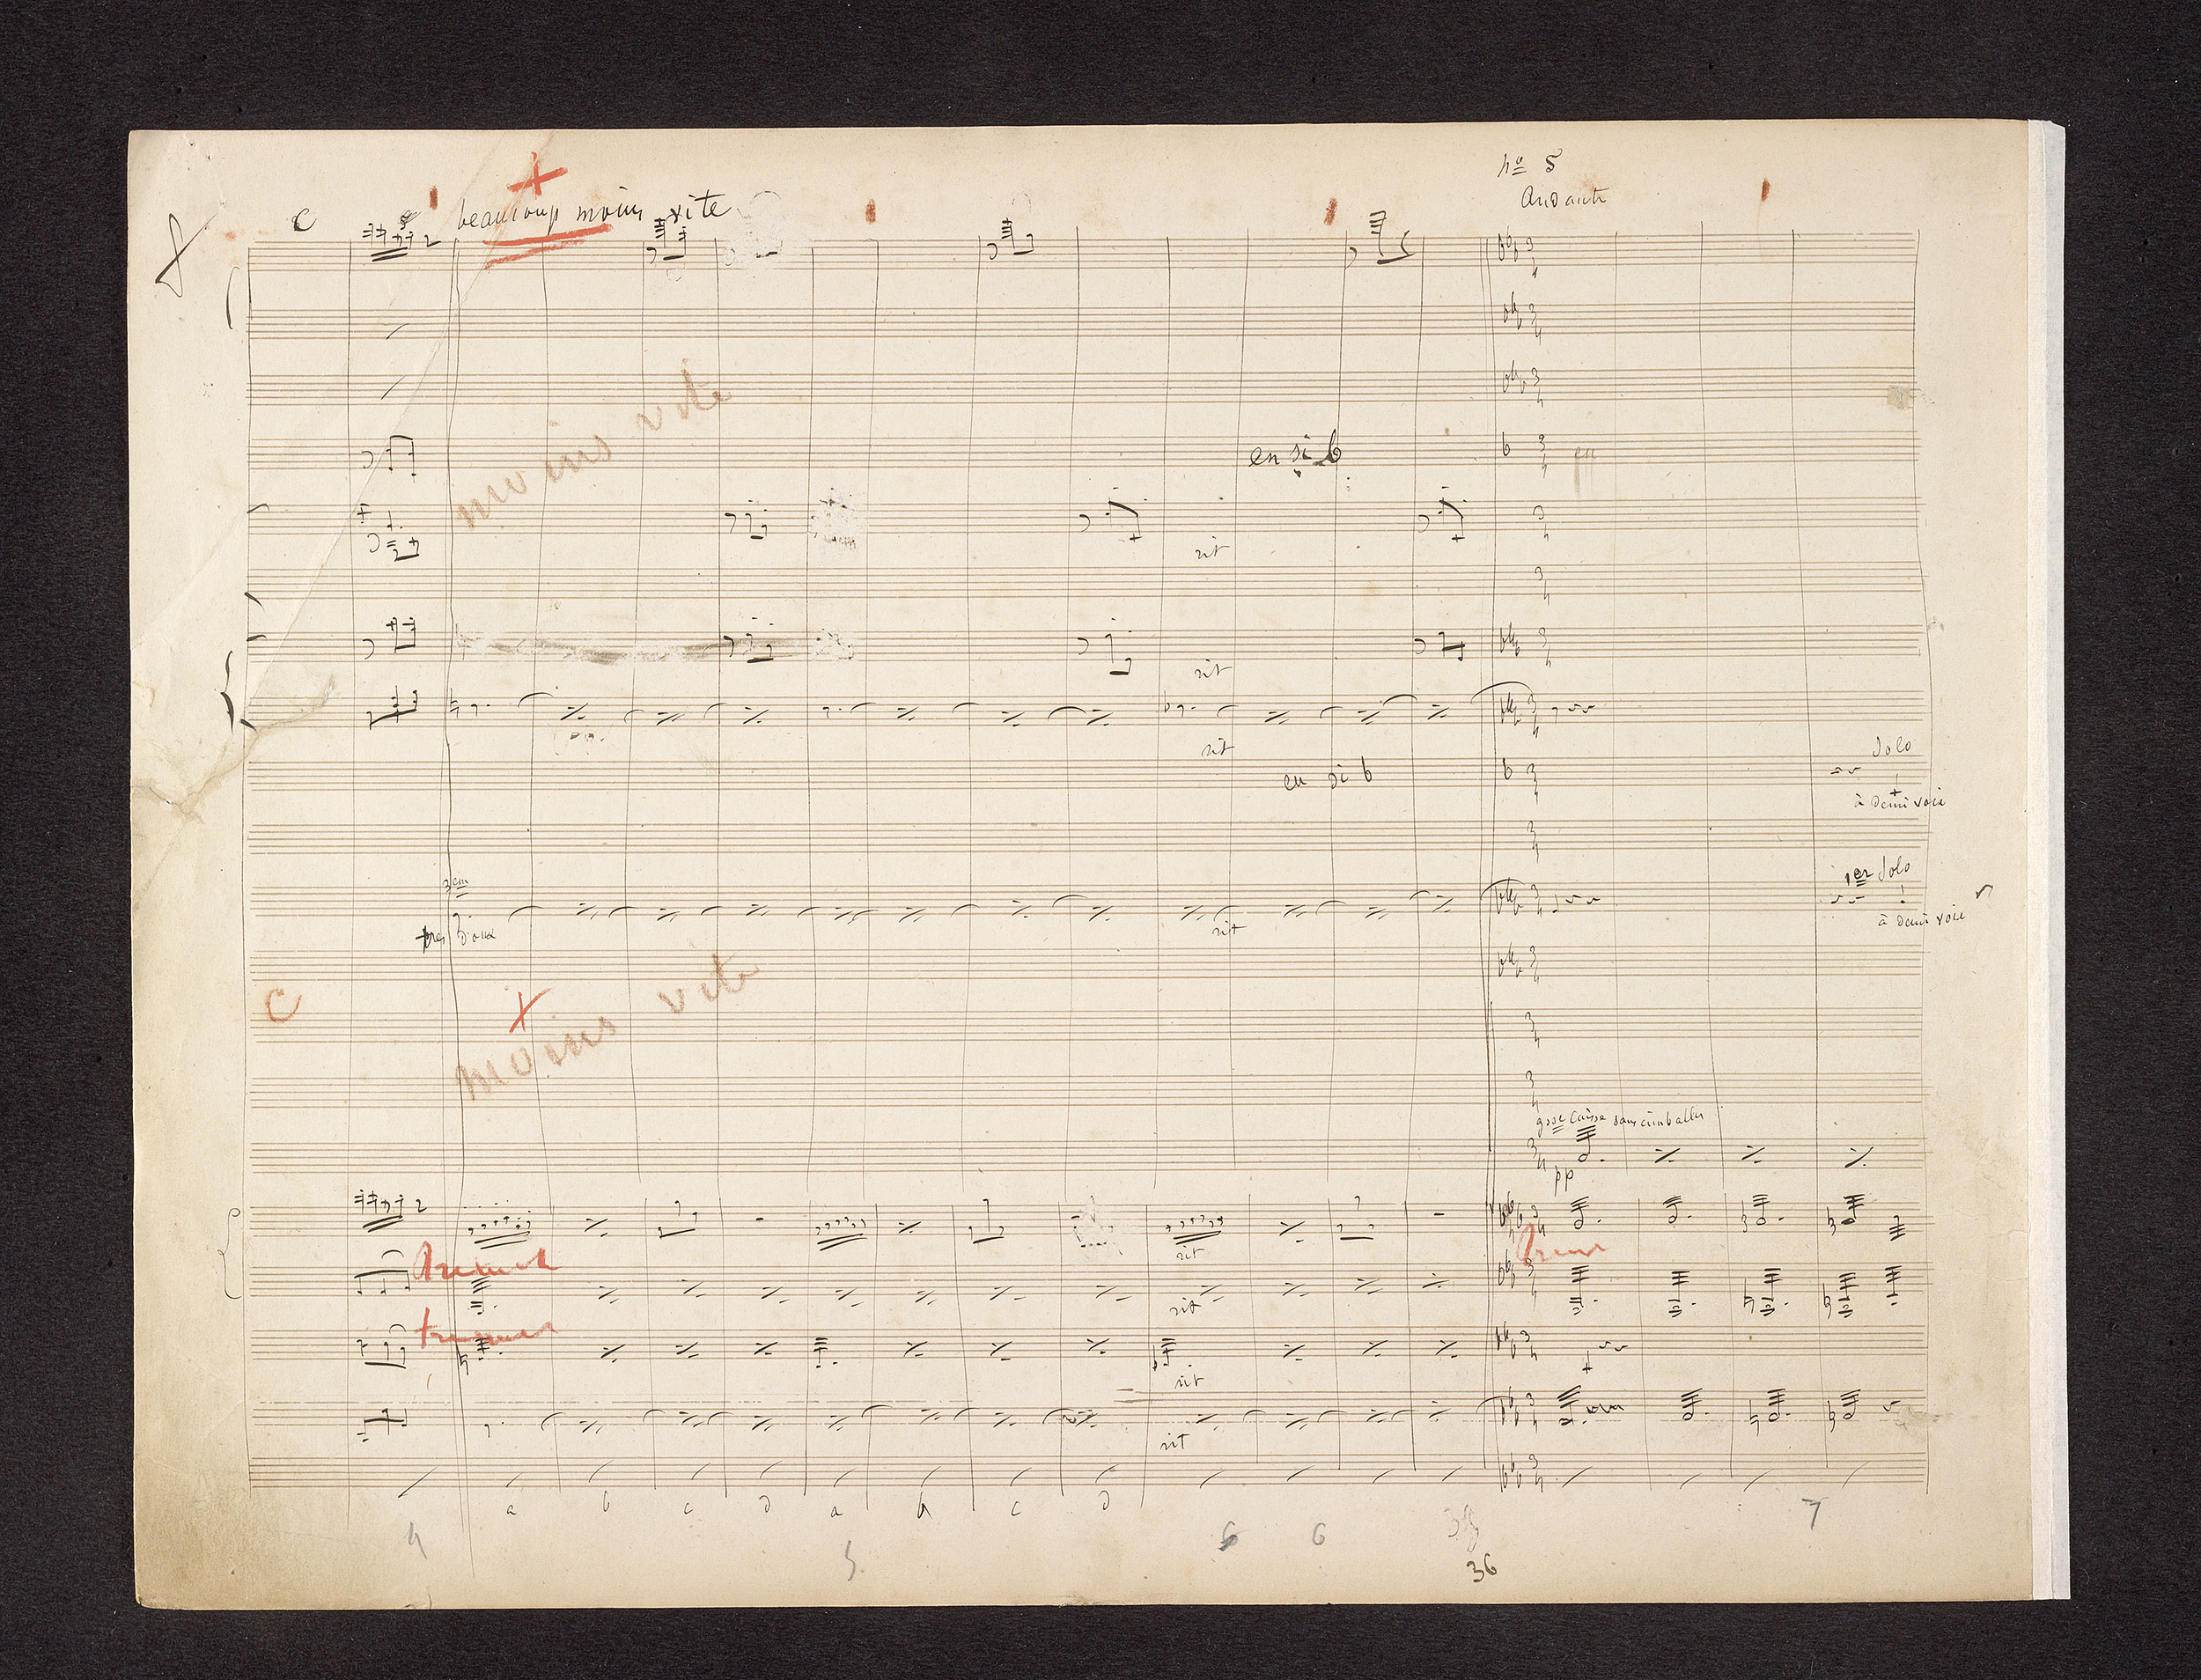 nº 5
Andante
C
beaucoup moins vite
moins vite
en si b
rit
rit
rit
Solo
en si b
à demi voix
1er Solo
très doux
rit
à demi voix
C
moins vite
gsse Caisse sans cimballes
pp
rit
rit
rit
rit
a b c d a b c d
4
5
6
6
7
36